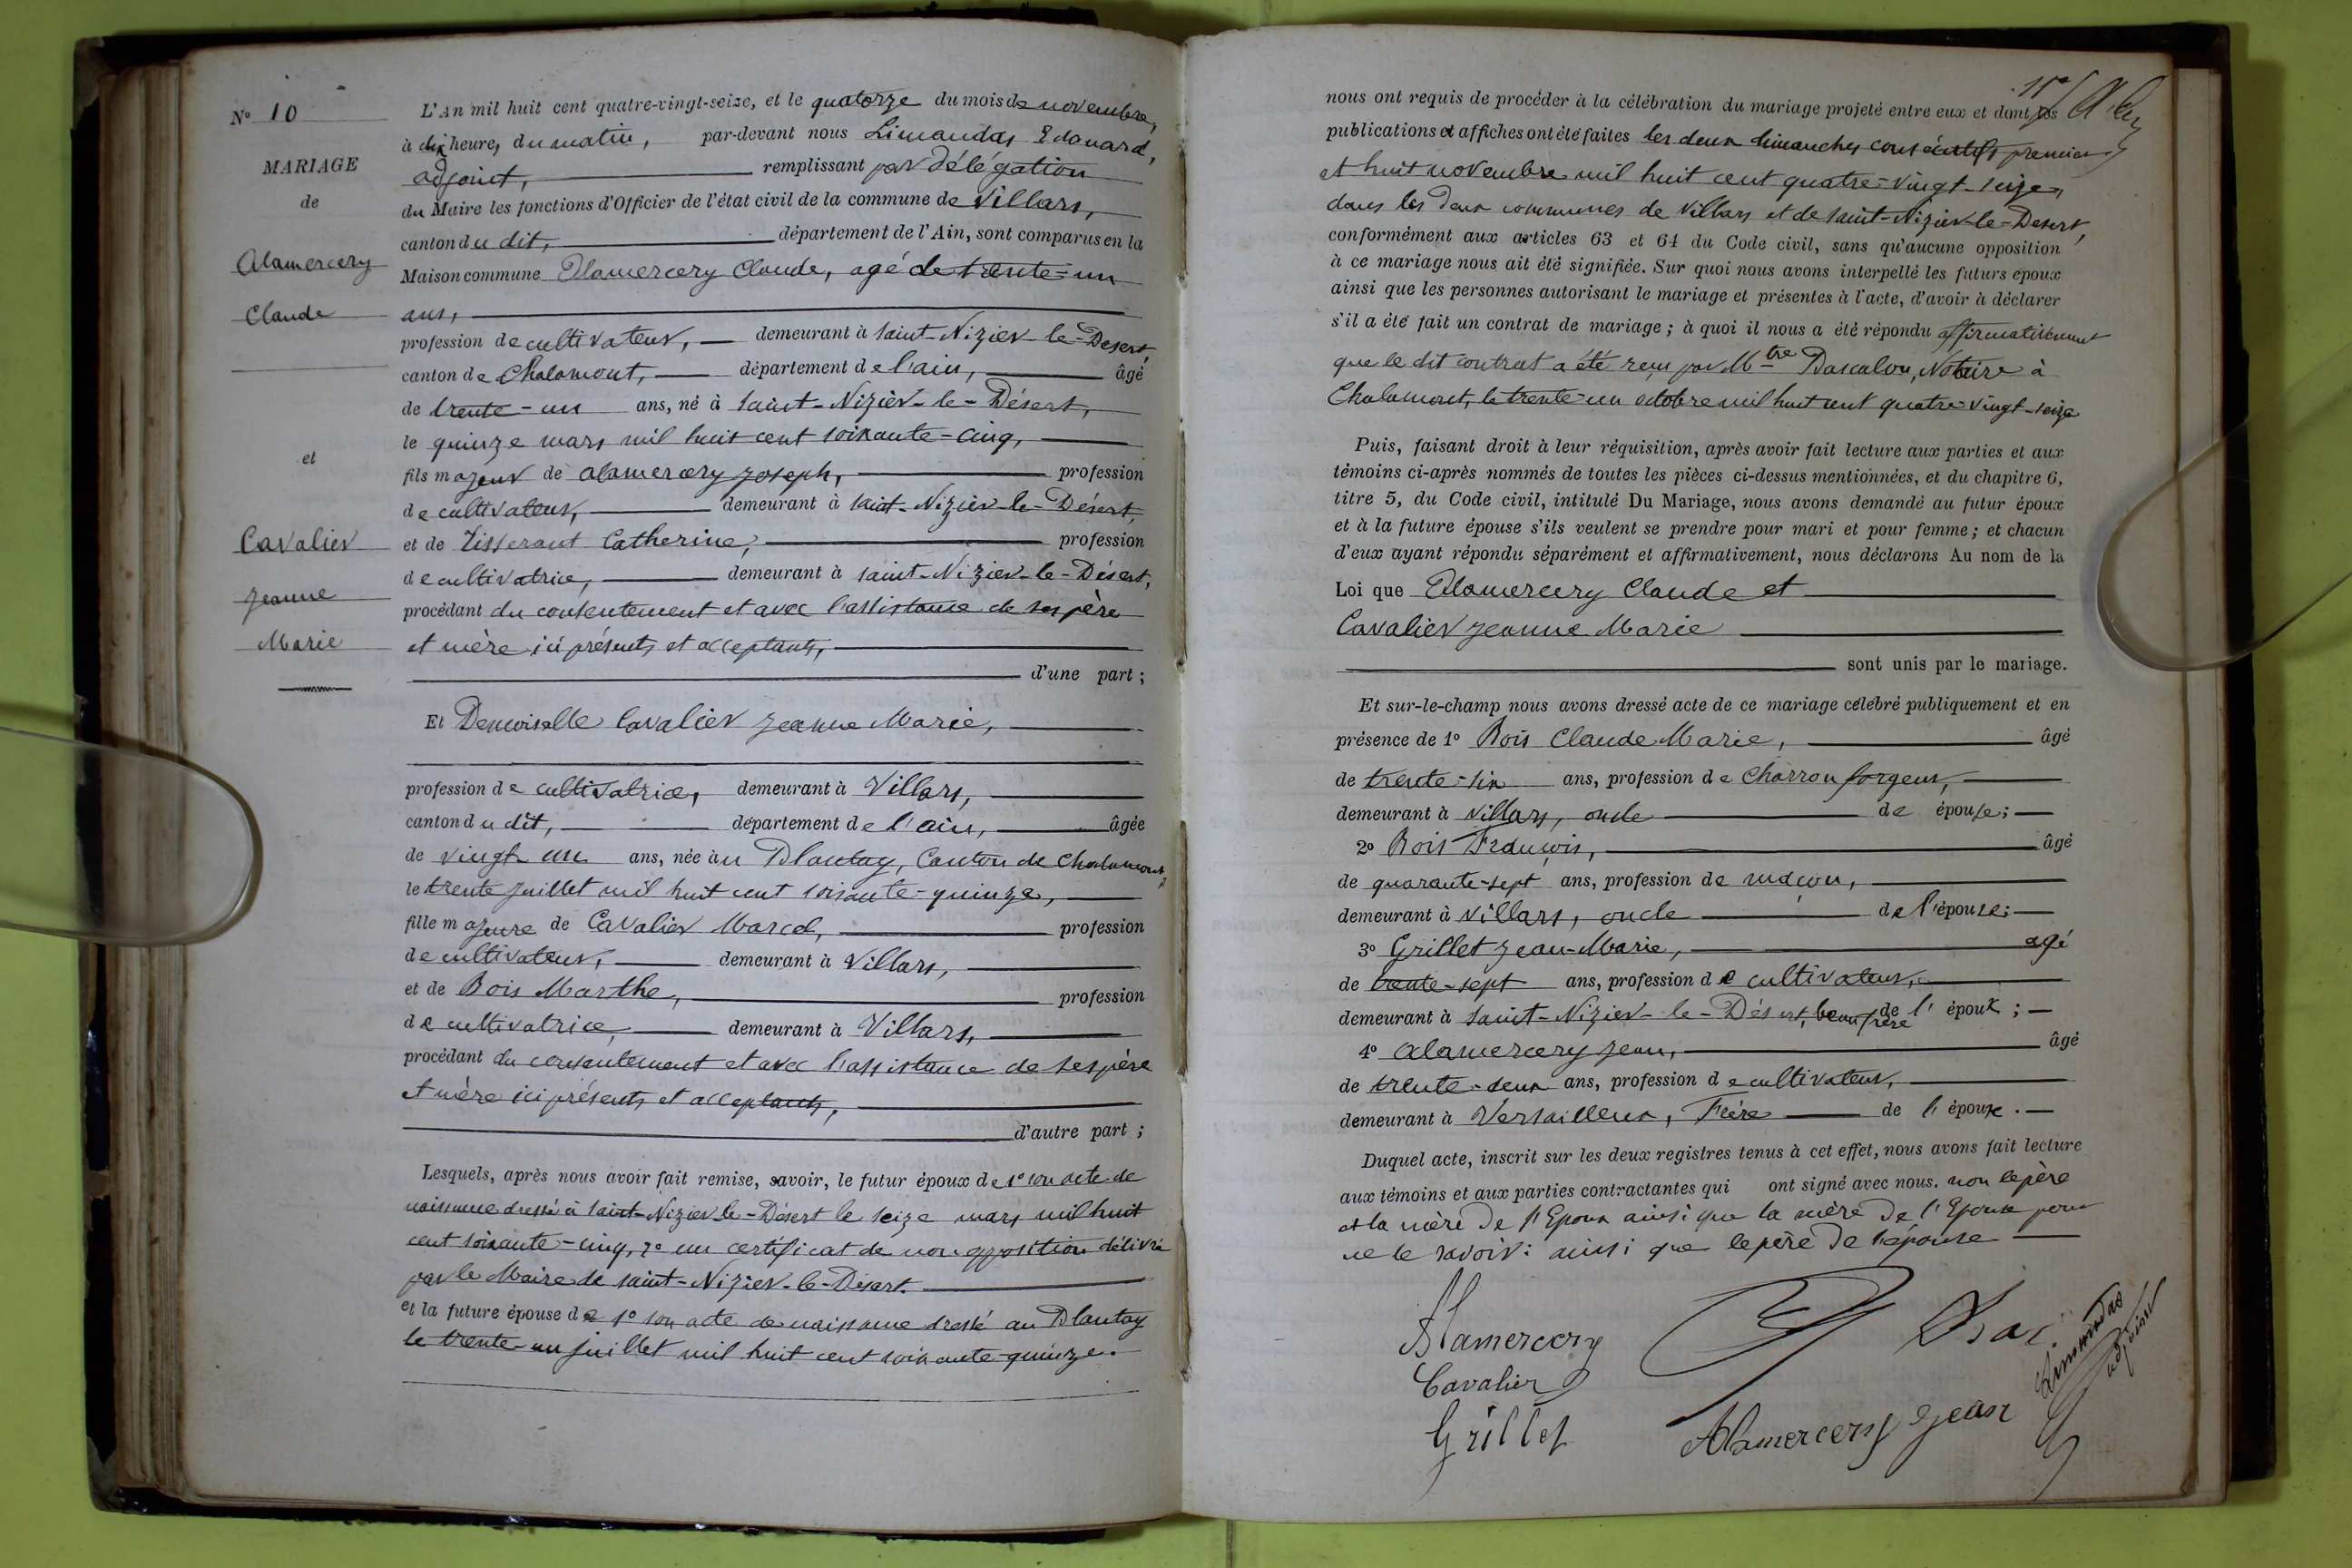 N° 10
MARIAGE
de
Alamercery
Claude
et
Cavalier
Jeanne
Marie
L'an mil huit cent quatre-vingt-seize, et le quatorze du mois de novembre,
à dix heures du matin, par-devant nous Limandas Edouard,
adjoint, remplissant par délégation
du Maire les fonctions d'Officier de l'état civil de la commune de Villars,
canton du dit, département de l'Ain, sont comparus en la
Maison commune Alamercery Claude, agé de trente-un
ans,
profession de cultivateur, demeurant à Saint-Nizier-le-Desert,
canton de Chalamont, département de l'ain, âgé
de trente-un ans, né à Saint-Nizier-le-Désert,
le quinze mars mil huit cent soixante-cinq,
fils majeur de Alamercery Joseph, profession
de cultivateur, demeurant à Saint-Nizier-le-Désert,
et de Tisserant Catherine, profession
de cultivatrice, demeurant à Saint-Nizier-le-Désert,
procédant du consentement et avec l'assistance de ses père
et mère ici présents et acceptants,
d'une part ;
Et Demoiselle Cavalier Jeanne Marie,
profession de cultivatrice, demeurant à Villars,
canton du dit, département de l'ain, âgée
de vingt-un ans, née au Plantay, Canton de Chalamont,
le trente Juillet mil huit cent soixante-quinze,
fille majeure de Cavalier Marcel, profession
de cultivateur, demeurant à Villars,
et de Bois Marthe, profession
de cultivatrice, demeurant à Villars,
procédant du consentement et avec l'assistance de ses père
et mère ici présents et acceptants,
d'autre part ;
Lesquels, après nous avoir fait remise, savoir, le futur époux de 1° son acte de
naissance dressé à Saint-Nizier-le-Désert le seize mars mil huit
cent soixante-cinq, 2° un certificat de non opposition délivré
par le Maire de Saint-Nizier-le-Désert.
et la future épouse de 1° son acte de naissance dressé au Plantay
le trente-un Juillet mil huit cent soixante-quinze.
nous ont requis de procéder à la célébration du mariage projeté entre eux et dont les
publications et affiches ont été faites les deux dimanches consécutifs premier
et huit novembre mil huit cent quatre-vingt-seize,
dans les deux communes de Villars et de Saint-Nizier-le-Desert,
conformément aux articles 63 et 64 du Code civil, sans qu'aucune opposition
à ce mariage nous ait été signifiée. Sur quoi nous avons interpellé les futurs époux
ainsi que les personnes autorisant le mariage et présentes à l'acte, d'avoir à déclarer
s'il a été fait un contrat de mariage ; à quoi il nous a été répondu affirmativement
que le dit contrat a été reçu par Mtre Dascalon, Notaire à
Chalamont, le trente-un octobre mil huit cent quatre-vingt-seize
Puis, faisant droit à leur réquisition, après avoir fait lecture aux parties et aux
témoins ci-après nommés de toutes les pièces ci-dessus mentionnées, et du chapitre 6,
titre 5, du Code civil, intitulé Du Mariage, nous avons demandé au futur époux
et à la future épouse s'ils veulent se prendre pour mari et pour femme ; et chacun
d'eux ayant répondu séparément et affirmativement, nous déclarons Au nom de la
Loi que Alamercery Claude et
Cavalier Jeanne Marie
sont unis par le mariage.
Et sur-le-champ nous avons dressé acte de ce mariage célébré publiquement et en
présence de 1° Bois Claude Marie, âgé
de trente-six ans, profession de Charron forgeur,
demeurant à Villars, oncle de épouse ;
2° Bois François, âgé
de quarante-sept ans, profession de maçon,
demeurant à Villars, oncle de l'épouse ;
3° Grillet Jean-Marie, agé
de trente-sept ans, profession de cultivateur,
demeurant à Saint-Nizier-le-Désert, beau frère de l'époux ;
4° Alamercery Jean, âgé
de trente-deux ans, profession de cultivateur,
demeurant à Versailleux, Frère de l'époux.
Duquel acte, inscrit sur les deux registres tenus à cet effet, nous avons fait lecture
aux témoins et aux parties contractantes qui ont signé avec nous. non le père
et la mère de l'Epoux ainsi que la mère de l'Epouse pour
ne le savoir: ainsi que le père de l'épouse
Alamercery
Bois
Limandas
adjoint
Cavalier
Grillet
Alamercery Jean